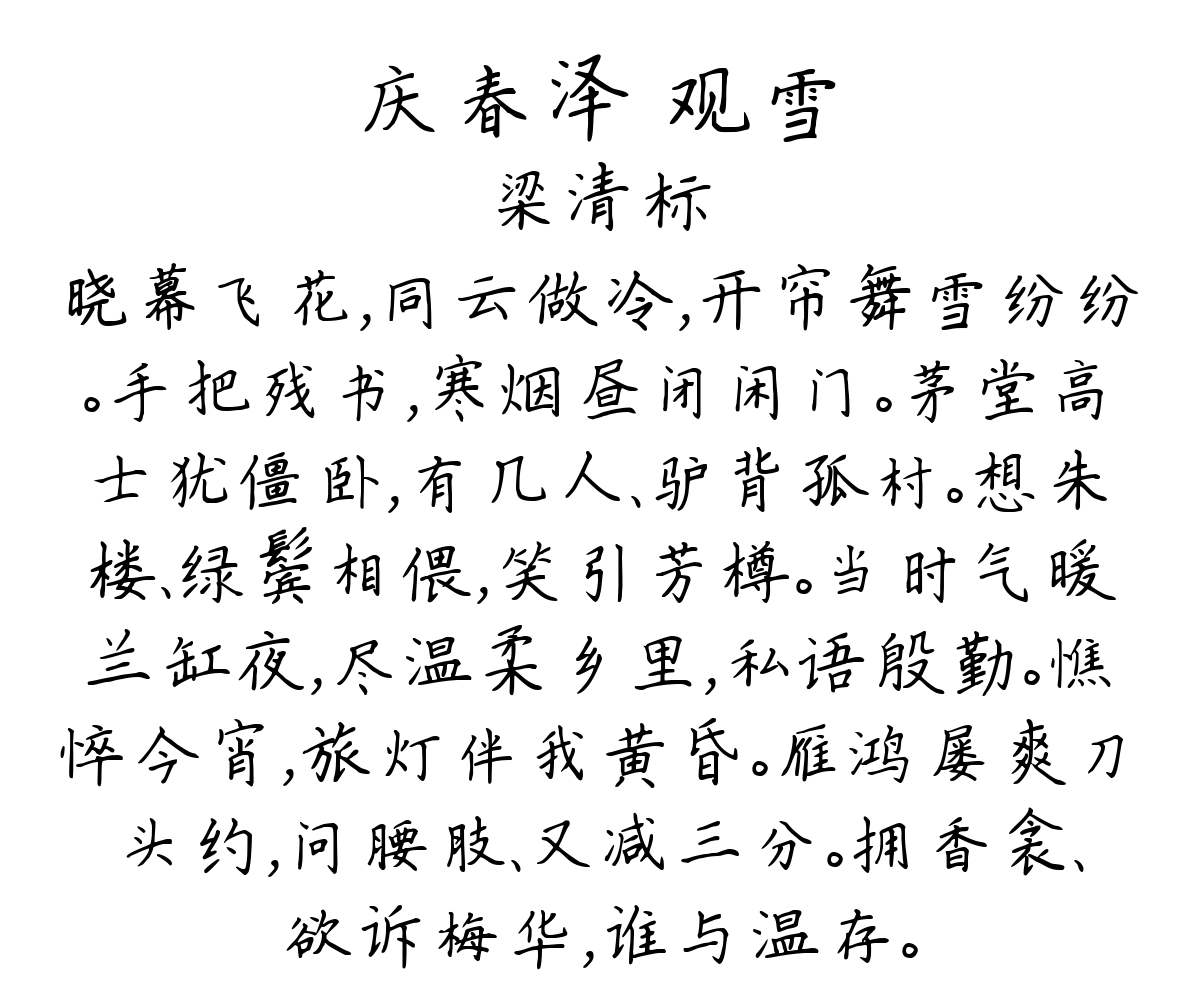 庆春泽 观雪
梁清标
晓幕飞花,同云做冷,开帘舞雪纷纷
。手把残书,寒烟昼闭闲门。茅堂高
士犹僵卧,有几人、驴背孤村。想朱
楼、绿鬓相偎,笑引芳樽。当时气暖
兰缸夜,尽温柔乡里,私语殷勤。憔
悴今宵,旅灯伴我黄昏。雁鸿屡爽刀
头约,问腰肢、又减三分。拥香衾、
欲诉梅华,谁与温存。